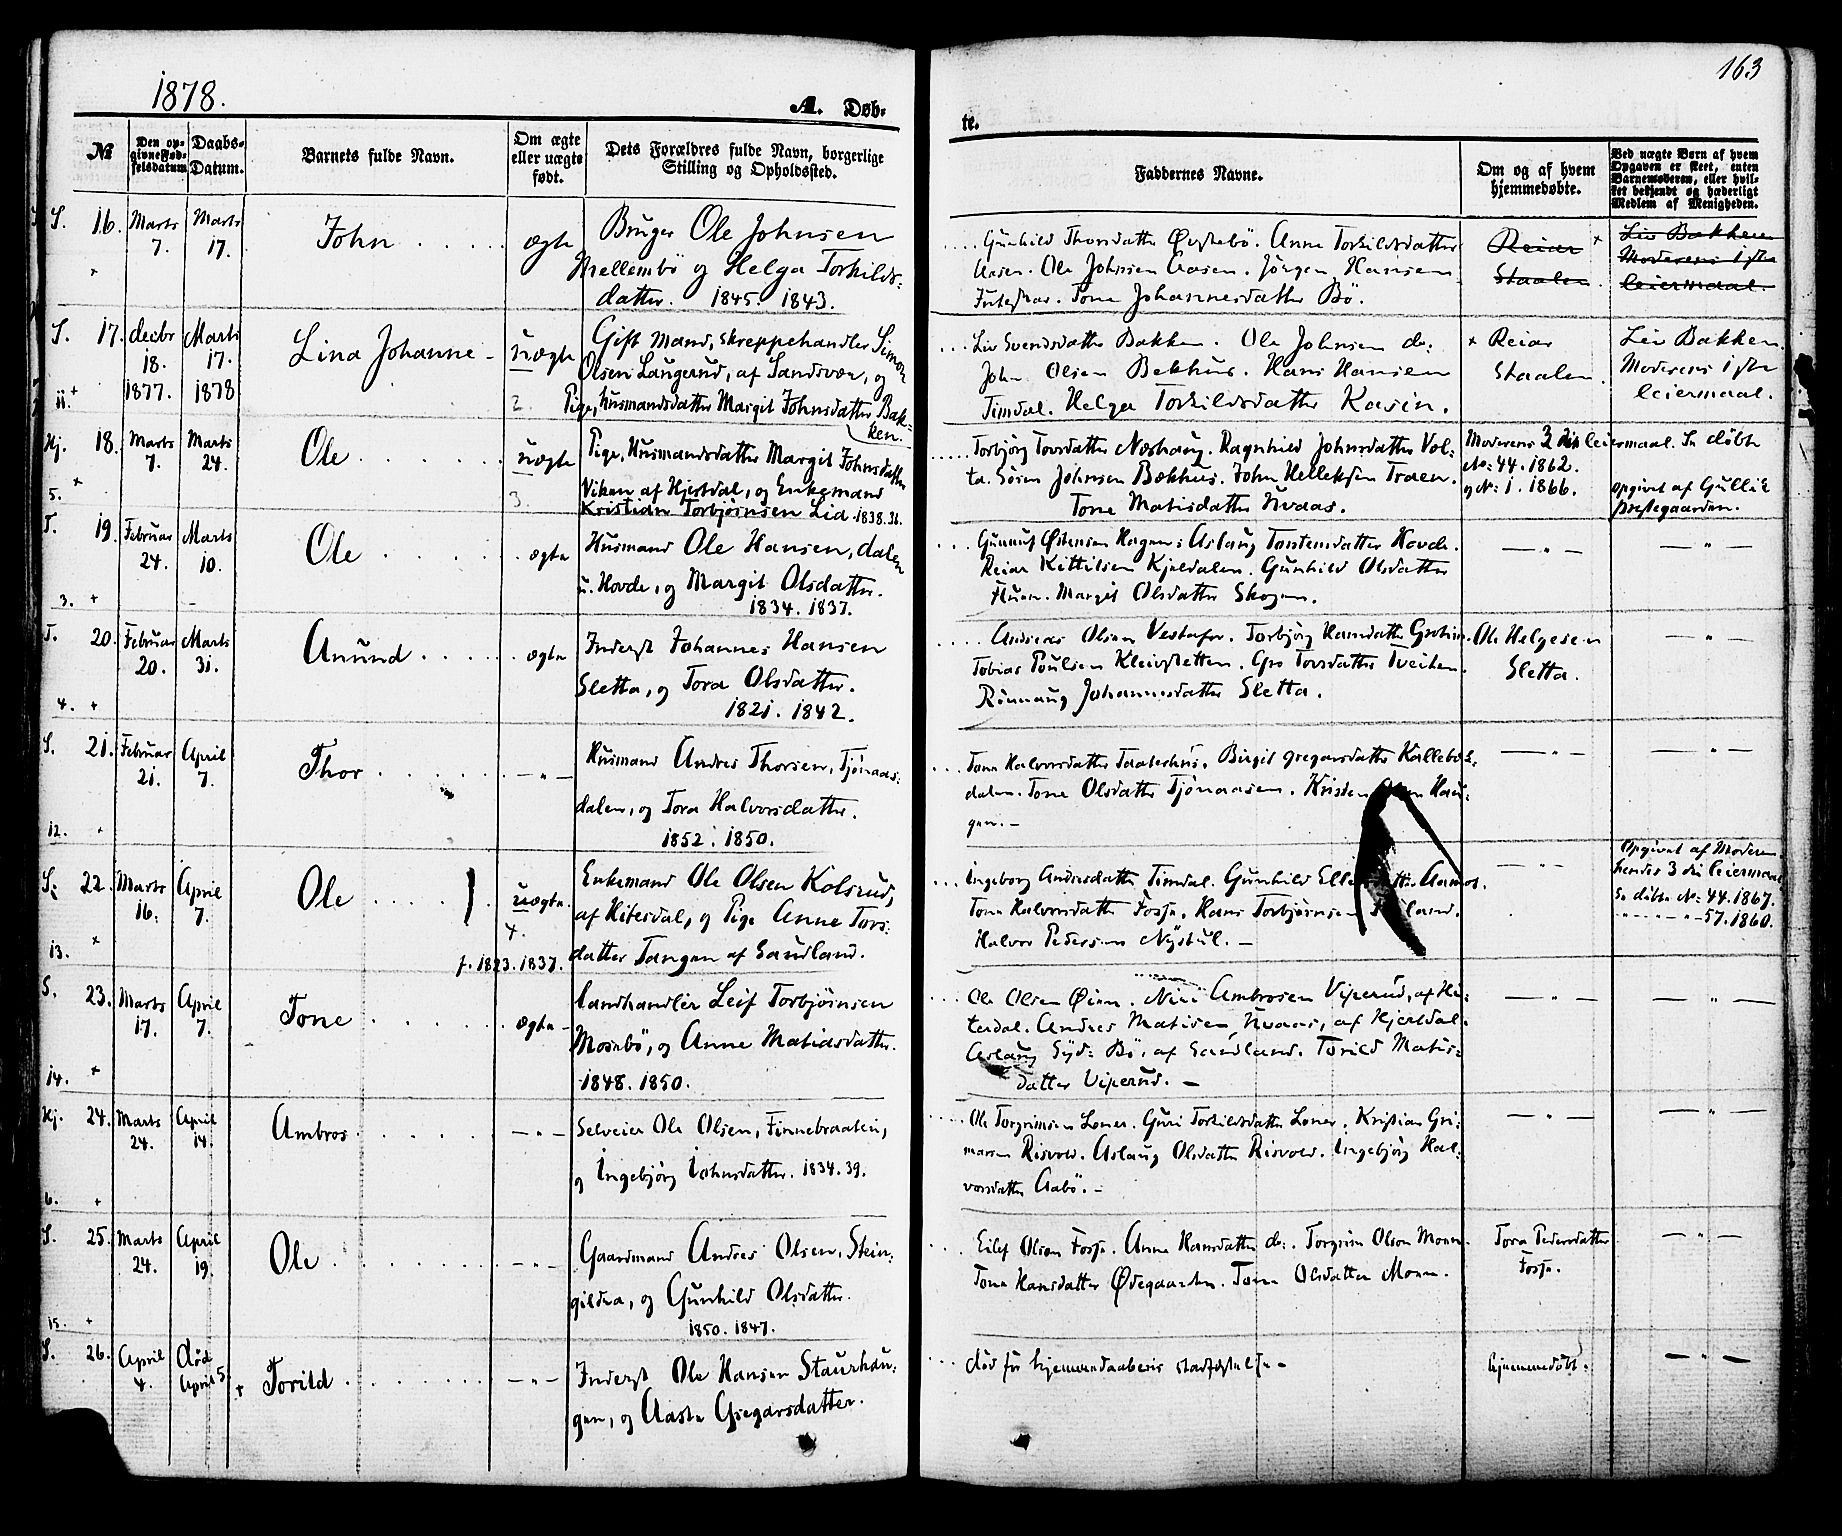 1878.
163
A. Døb-
te.
№
Den op-
givne Fød-
selsdatum
Daabs-
Datum.
Barnets fulde Navn.
Om ægte
eller uægte
født.
Dets Forældres fulde Navn, borgerlige
Stilling og Opholdssted.
Faddernes Navne.
Om og af hvem
hjemmedøbte.
Ved uægte Børn af hvem
Opgaven er skeet, enten
Barnemoderen, eller hvil-
ket bekjendt og hæderligt
Medlem af Menigheden.
S. 16. Marts 7. Marts 17.
John
ægte
Bruger Ole Johnsen
Mellembö og Helga Torkilds-
datter. 1845. 1843.
Gunhild Thorsdatter. Anne Torkildsdatter
Aasen. Ole Johnsen Aasen. Jörgen Hansen
Tone Johannesdatter Bö.
Reiar
Staalen
Liv Bakken
Moderens 1ste
leiermaal.
S. 17. decbr 18. 1877. Marts 17. 1878
Lina Johanne -
uægte
2.
Gift mand, skreppehandler Simon
Olsen Laugerud, af Sandsvær, og
Pige, husmandsdatter Margit Johnsdatter Bak-
ken.
Liv Svendsdatter Bakken. Ole Johnsen do:
John Olsen Bekhus. Hans Hansen
Timdal. Helga Torkildsdatter Kasin.
+ Reiar
Staalen.
Liv Bakken.
Moderens 1ste
leiermaal.
11.
Hj. 18. Marts 7. Marts 24.
Ole
uægte
3.
Pige, Husmandsdatter Margit Johnsdatter
Viken af Hjertdal, og Enkemand
Kristian Torbjørnsen Lid. 1838. 31.
Torbjörg Torsdatter Nøshaug. Ragnhild Johnsdatter Vol-
ta. Sören Johnsen Bækhus. John Helleksen Traen.
Tone Matisdatter Kvaas.
Moderens 3die leiermaal. Se döbte
No: 44. 1862.
og N: 1. 1866.
opgivet af Gullik
prestegaarden.
5.
T. 19. Februar 24. Marts 10.
Ole
ægte
Husmand Ole Hansen, dalen
u. Hovde, og Margit Olsdatter.
1834. 1837.
Gunnuf Östensen Hagen: Aslaug Torstensdatter Hovde.
Reiar Kittilsen Kjeldalen. Gunhild Olsdatter
Margit Olsdatter Skogen.
— " —
— " —
3. +
T. 20. Februar 20. Marts 31.
Anund
ægte
Inderst Johannes Hansen
Sletta, og Tora Olsdatter.
1821. 1842.
Andreas Olsen Vestafor. Torbjörg Hansdatter Grotin.
Tobias Poulsen Kleivstetten. Gro Torsdatter Tveiten.
Rönnaug Johannesdatter Sletta.
Ole Helgesen
Sletta.
— " —
4. +
S. 21. Februar 21. April 7.
Thor
— " —
Husmand Andres Thorsen, Tjönaas-
dalen, og Tora Halvorsdatter.
1852. 1850.
Tone Halvorsdatter. Birgit Gregarsdatter Kallebæk-
dalen. Tone Olsdatter Tjönaasen. Kristen Olsen Hau-
gen. -
— " —
— " —
12.
S. 22. Marts 16. April 7.
Ole
uægte.
4.
f. 1823. 1837.
Enkemand Ole Olsen Kolsrud,
af Hitesdal, og Pige Anne Tors-
datter Tangen af Saudland.
Ingeborg Andresdatter Timdal. Gunhild Aamot.
Tone Halvorsdatter Fosse. Hans Torbjørnsen
Halvor Pedersen Nystul. -
— " —
Opgivet af Moderen
hendes 3die leiermaal
Se döbte No: 44. 1867.
" - " - 57. 1860.
13. +
S. 23. Marts 17. April 7.
Tone
ægte -
Landhandler Leif Torbjørnsen
Mosebö, og Anne Matiasdatter.
1848. 1850.
Ole Olsen Öien. Nils Ambrosen Viperud, af Hi-
terdal. Andres Matisen Kvaas, af Hjertdal.
Aslaug Syd: Bö, af Saudland. Torild Matis-
datter Viperud. -
— " —
— " —
14. +
Hj. 24. Marts 24. April 14.
Ambros
— " —
Selveier Ole Olsen, Finnebraaten,
og Ingebjörg Johnsdatter. 1834. 39.
Ole Torgrimsen Loner. Guri Torkildsdatter Loner. Kristian Gri-
marsen Risvold. Aslaug Olsdatter Risvold. Ingebjörg Hal-
vorsdatter Aabö. -
— " —
— " —
6. +
S. 25. Marts 24. April 19.
Ole
— " —
Gaardmand Andres Olsen, Stein-
gildra, og Gunhild Olsdatter.
1850. 1847.
Eilef Olsen Fosse. Anne Hansdatter do:. Torgrim Olsen Moen.
Tone Hansdatter Ödegaarden. Tone Olsdatter Moen.
Tora Pedersdatter
Fosse.
— " —
15. +
S. 26. April 4. död April 5.
+ Torild
— " —
Inderst Ole Hansen Staurhau-
gen, og Aaste Gregarsdatter.
död för hjemmedaabens stadfæstelse -
hjemmedöbt.
— " —